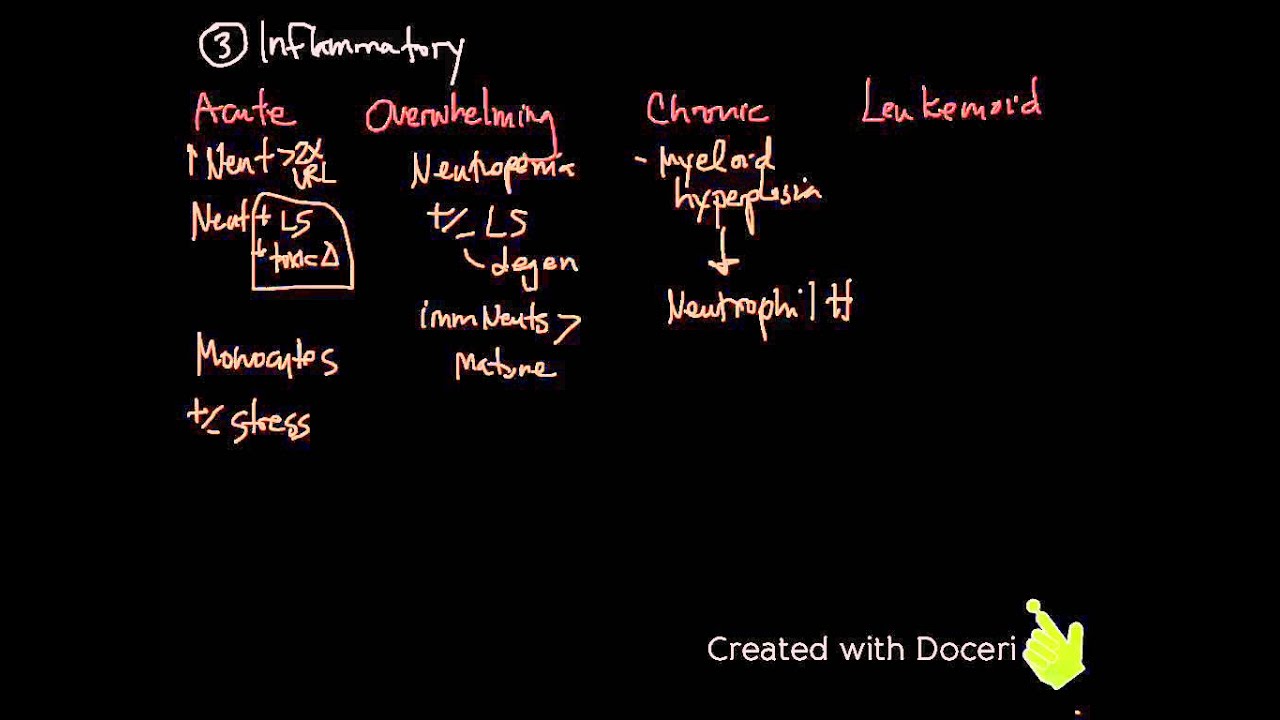 ③ Inflammatory
Acute Overwhelming Chronic Leukemoid
↑ Neut >2X
URL
Neut + LS
+ toxic Δ
Monocytes
+/- stress
Neutropenia
+/- LS
degen
imm Neuts >
mature
- myeloid
hyperplasia
↓
Neutrophil #
Created with Doceri